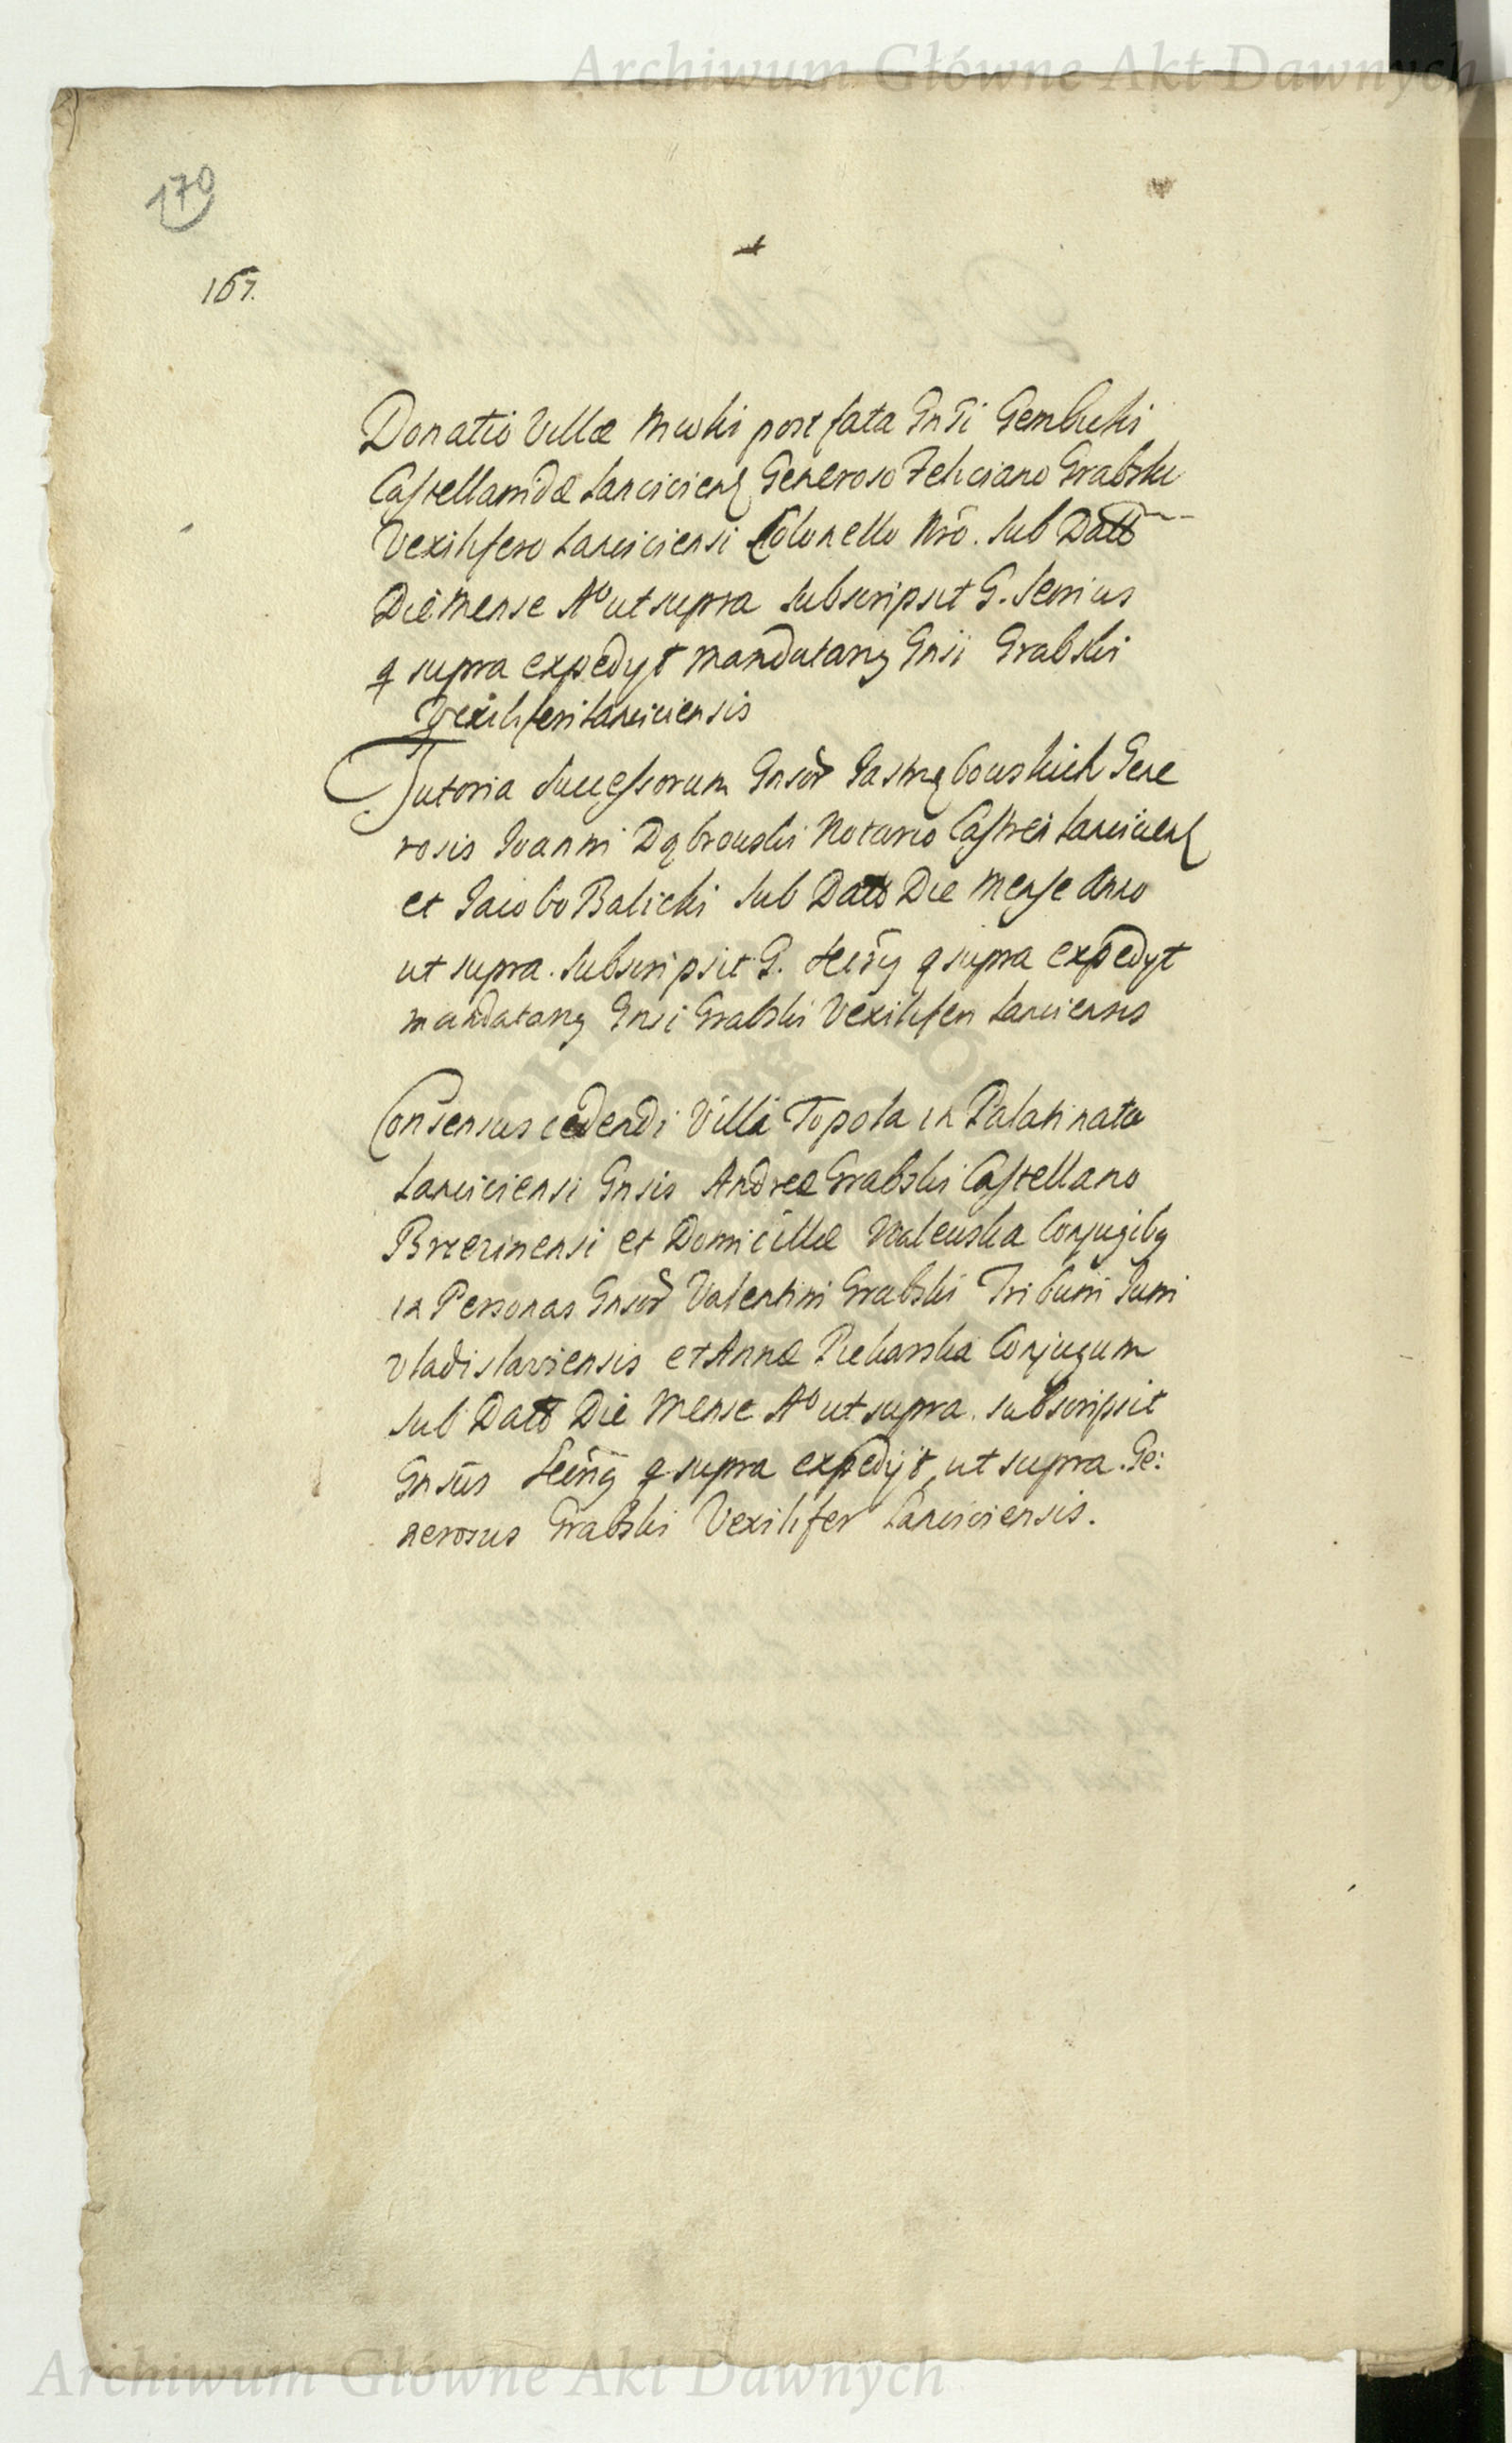 Archiwum Główne Akt Dawnych
170
167.
Donatio Villæ post fata Gnsi Gembicki
Castellanidæ Lanciciens Generoso Feliciano Grabski
Vexilifero Lanciciensi Colonello Nro. Sub Datt
Die Mense Aº ut supra subscripsit G.
q supra expedyt mandatarÿ Gnsi Grabski
Vexiliferi Lanciciensis
Tutoria Successorum Gnsor Jastrzębowskich Gene
rosis Joanni Dąbrowski Notario Castren Lanciciens
et Jacobo Balicki Sub Datt Die Mense Anno
ut supra. subscripsit G. q supra expedyt
mandatarÿ Gnsi Grabski Vexiliferi Lanciensis
Consensus cedendi Villa Topola in Palatinatu
Lanciciensi Gnsis Andreæ Grabski Castellano
Brzezinensi et Domicillæ Walewska Conjugibg
in Personas Gnsor Valentini Grabski Tribuni Juni
Vladislaviensis et Annæ Piekarska Conjugum
Sub Datt Die Mense Aº ut supra. subscripsit
Gnsus q supra expedijt, ut supra. Ge:
nerosus Grabski Vexilifer Lanciciensis.
Archiwum Główne Akt Dawnych